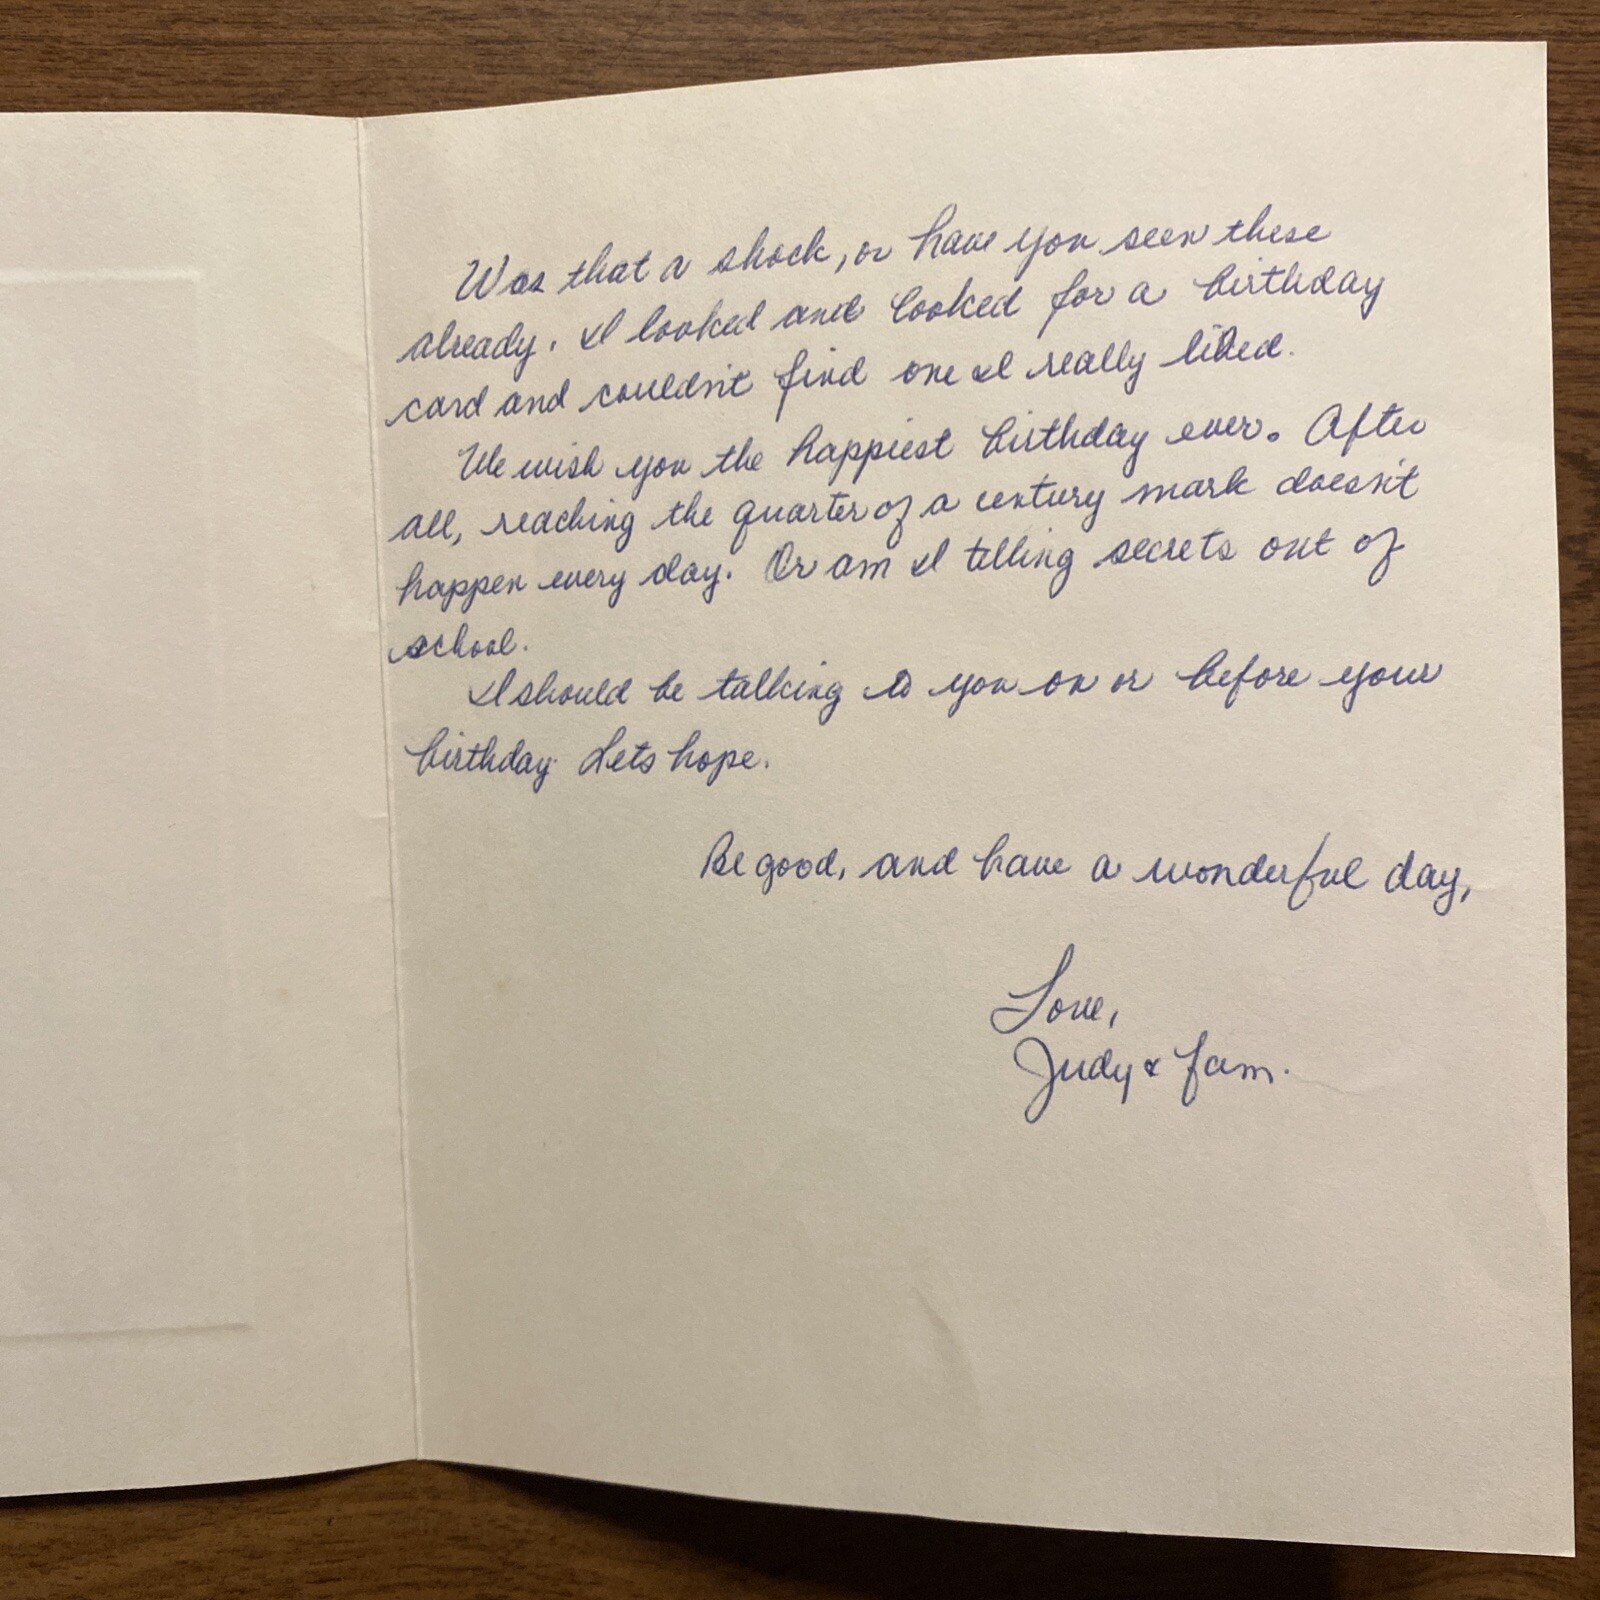 Was that a shock, or have you seen these
already. I looked and looked for a birthday
card and couldn't find one I really liked.
We wish you the happiest birthday ever. After
all, reaching the quarter of a century mark doesn't
happen every day. Or am I telling secrets out of
school.
I should be talking to you on or before your
birthday. Lets hope.
Be good, and have a wonderful day,
Love,
Judy & fam.